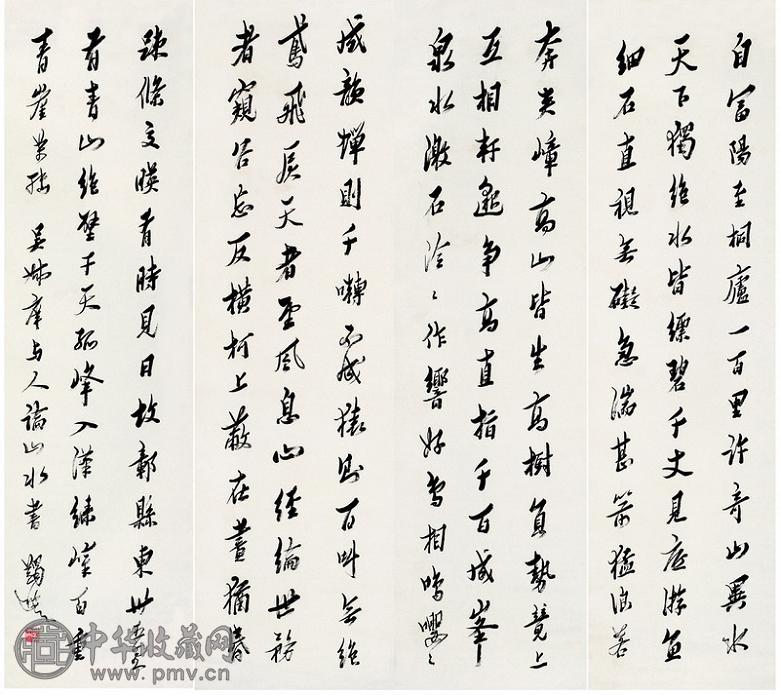 自富陽至桐廬一百里許奇山異水
天下獨絶水皆縹碧千丈見底游魚
細石直視無礙急湍甚箭猛浪若
奔夾嶂高山皆生高樹負勢競上
互相軒邈爭高直指千百成峯
泉水激石泠々作響好鳥相鳴嚶々
成韻蟬則千囀不猿則百叫無絶
鳶飛戾天者望風息心經綸世務
者窺谷忘反橫柯上蔽在晝猶昏
疎條交暎有時見日故鄣縣東卅五里
有青山絶壁干天孤峰入漢緑嶂百重
青崖萬轉 吳叔庠与人論山水書
中华收藏网
www.pmv.cn